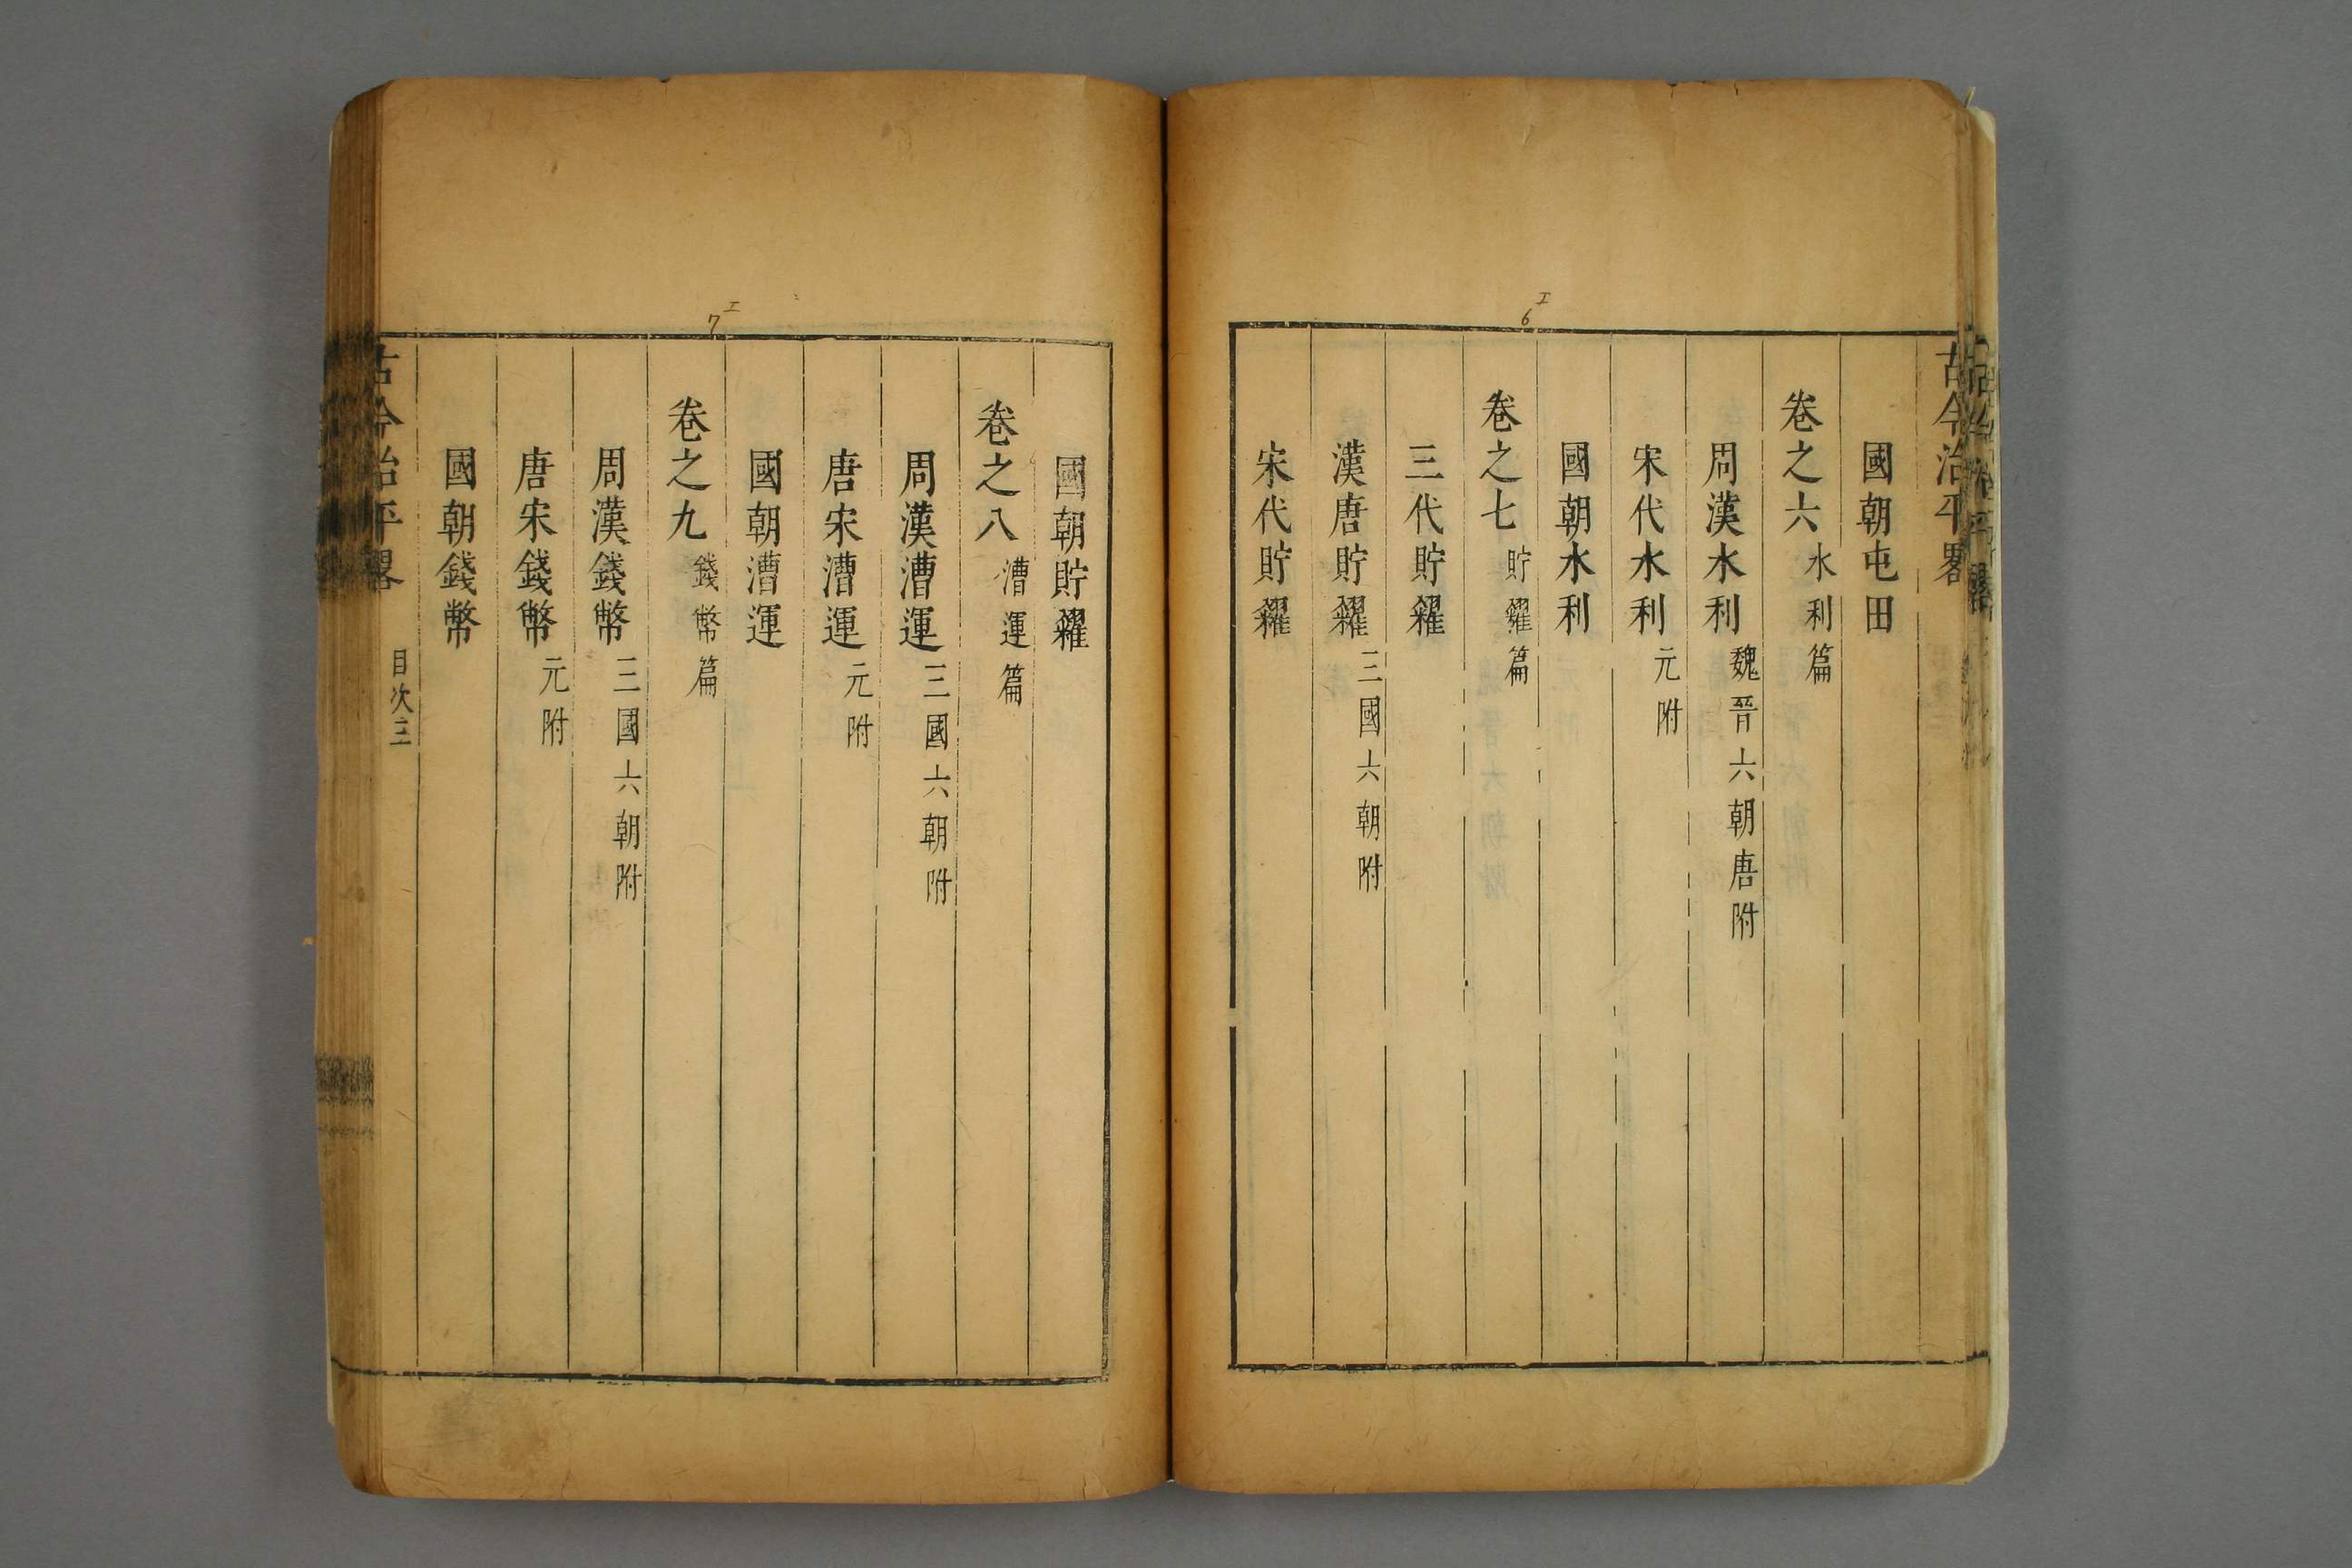 古今治平畧
國朝屯田
卷之六 水利篇
周漢水利 魏晉六朝唐附
宋代水利 元附
國朝水利
卷之七 貯糴篇
三代貯糴
漢唐貯糴 三國六朝附
宋代貯糴
I
6
國朝貯糴
卷之八 漕運篇
周漢漕運 三國六朝附
唐宋漕運 元附
國朝漕運
卷之九 錢幣篇
周漢錢幣 三國六朝附
唐宋錢幣 元附
國朝錢幣
古今治平畧 目次三
I
7